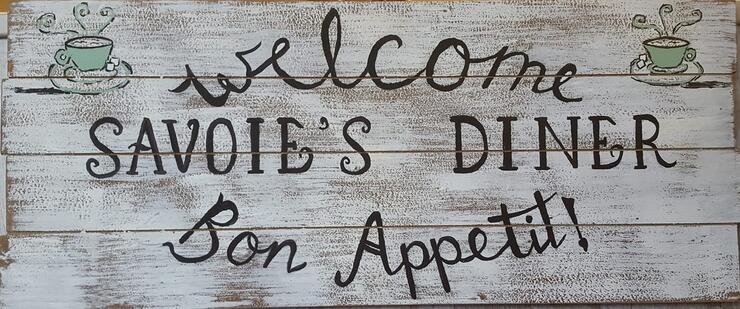 welcome
SAVOIE'S DINER
Bon Appetit!